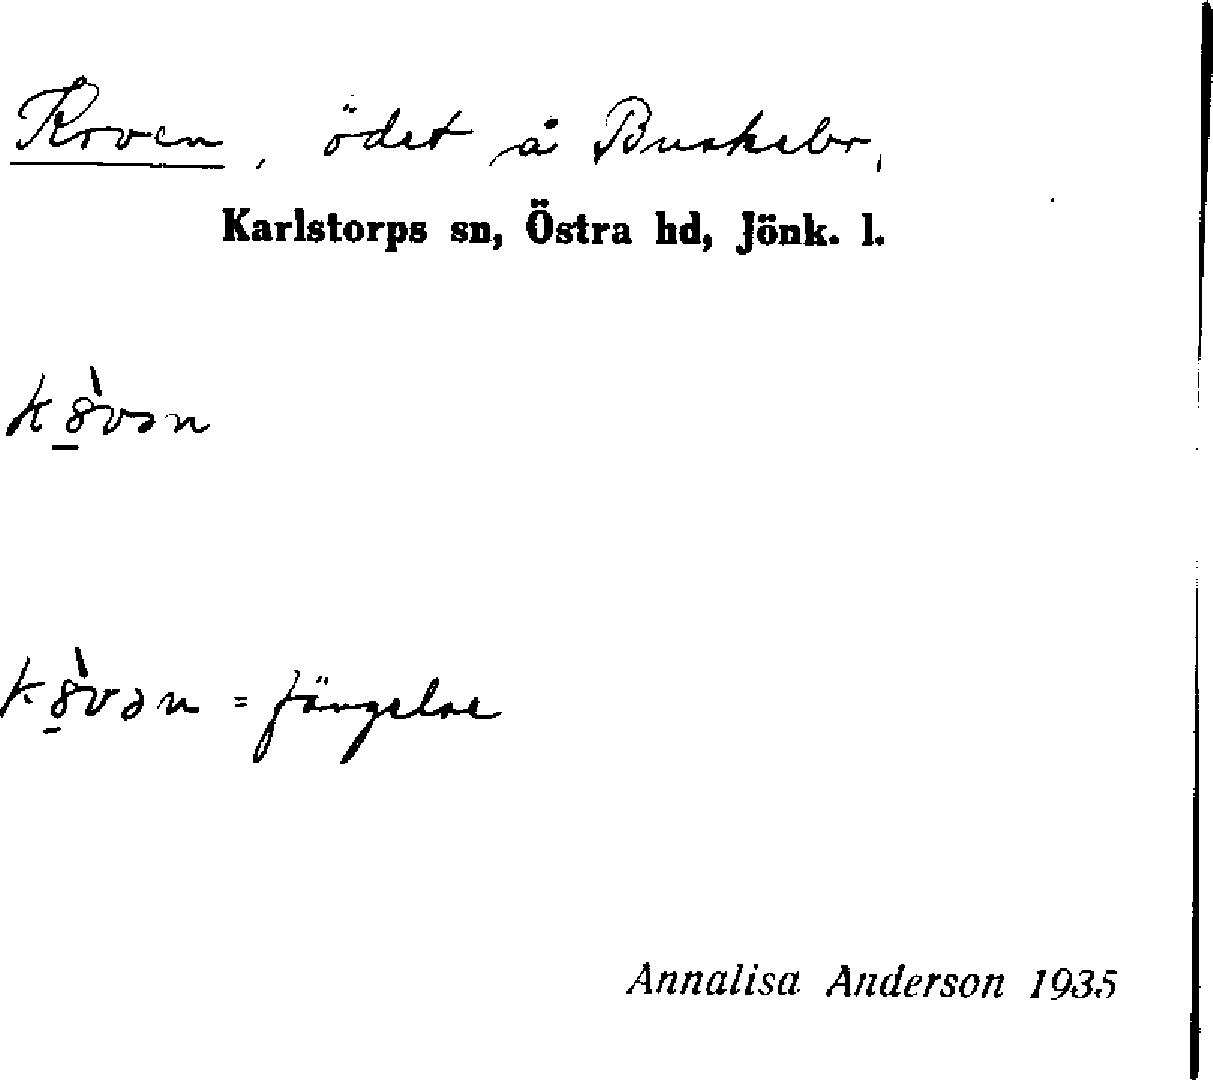 Kroven, ödet å Buskebr,
Karlstorps sn, Östra hd, Jönk. l.
= fängelse
Annalisa Anderson 1935